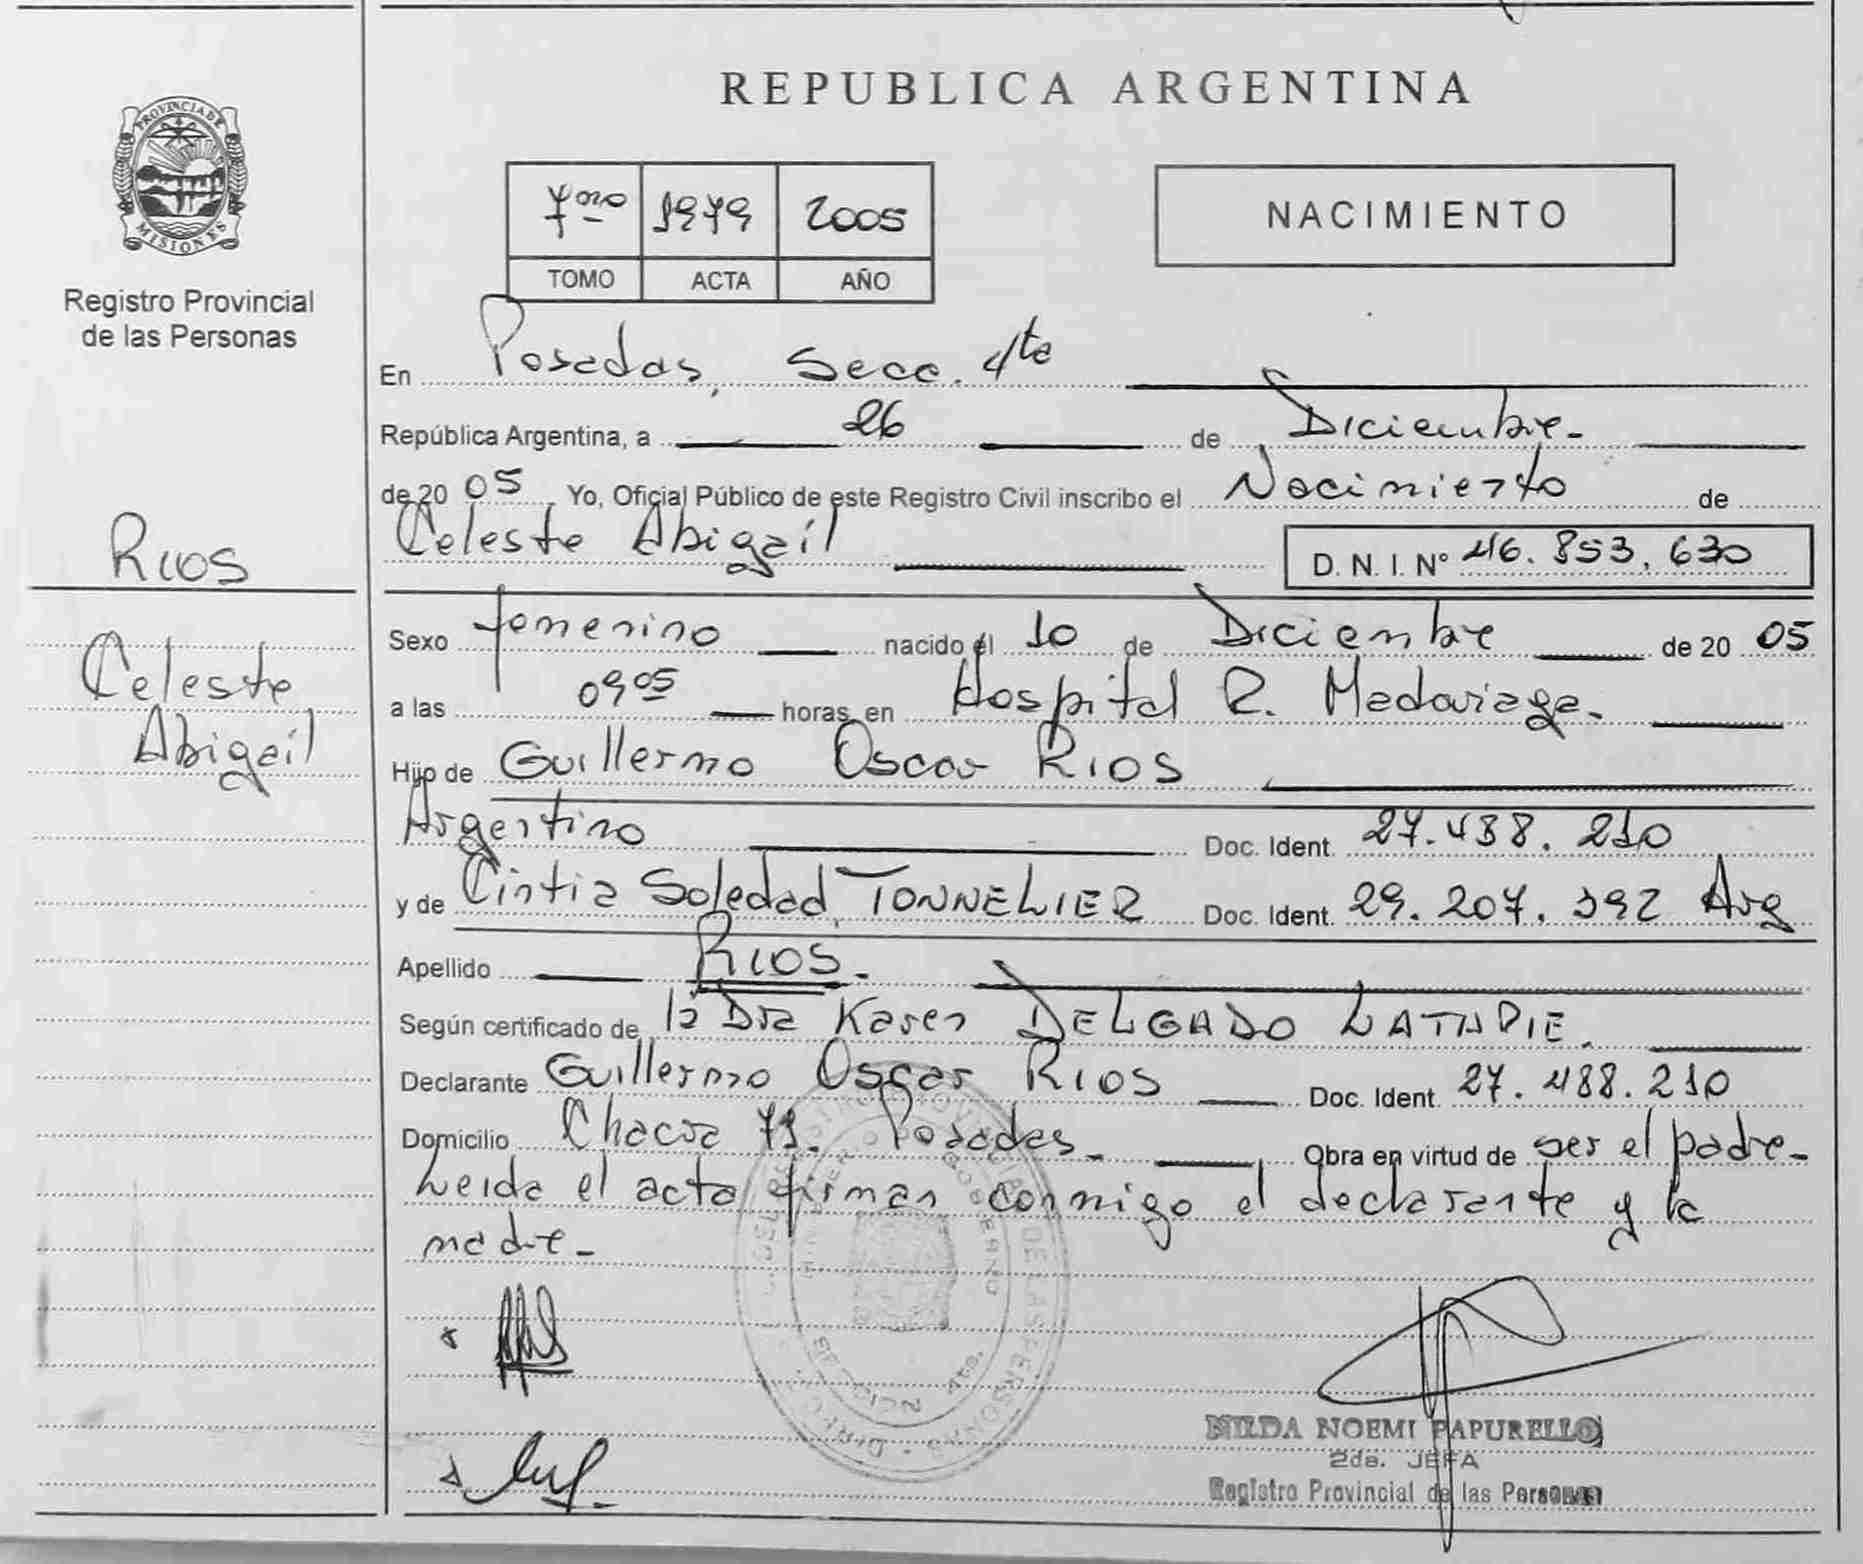 REPUBLICA ARGENTINA
PROVINCIA DE
MISIONES
Registro Provincial
de las Personas
7mo 1979 2005
TOMO ACTA AÑO
NACIMIENTO
En Posadas, Secc. 4ta
República Argentina, a 26 de Diciembre-
de 20 05 Yo, Oficial Público de este Registro Civil inscribo el Nacimiento de
Celeste Abigaíl D. N. I. Nº 46.853.630
Rios
Celeste
Abigail
Sexo femenino nacido el 10 de Diciembre de 20 05
a las 09 05 horas, en Hospital R. Madariaga.
Hijo de Guillermo Oscar RIOS
Argentino Doc. Ident. 27.488.210
y de Cintia Soledad, TONNELIER Doc. Ident. 29.207.392 Arg
Apellido RIOS.
Según certificado de la Dra Karen DELGADO
Declarante Guillermo Oscar RIOS Doc. Ident. 27.488.210
Domicilio Chacra 71. Posadas. Obra en virtud de ser el padre-
Leida el acta firman conmigo el declarante y la
madre-
NILDA NOEMI PAPURELLO
2da. JEFA
Registro Provincial de las Personas